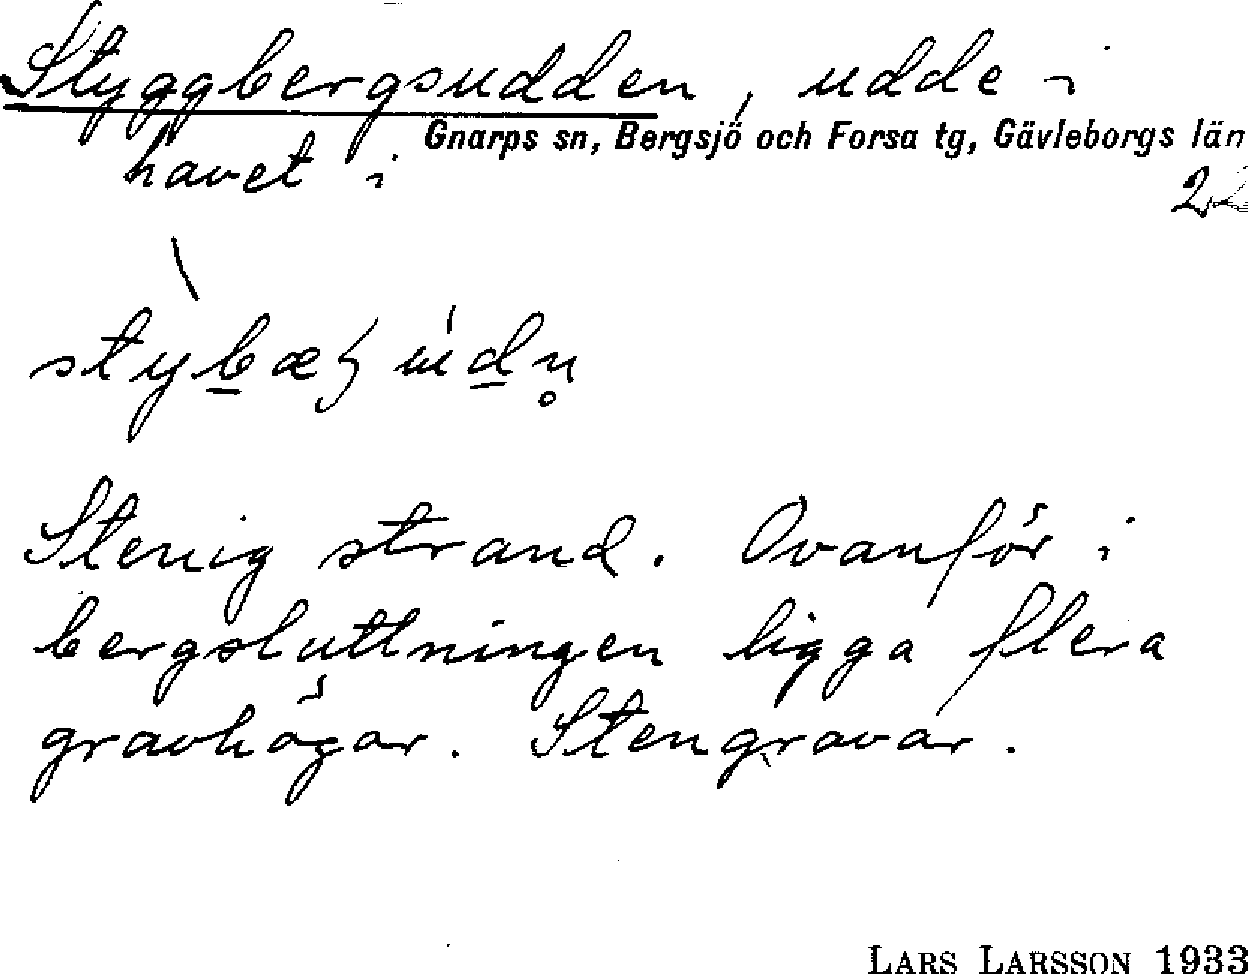 Styggbergsudden, udde i
havet i Gnarps sn, Bergsjö och Forsa tg, Gävleborgs län
22
Stenig strand. Ovanför i
bergsluttningen ligga flera
gravhögar. Stengravar.
LARS LARSSON 1933